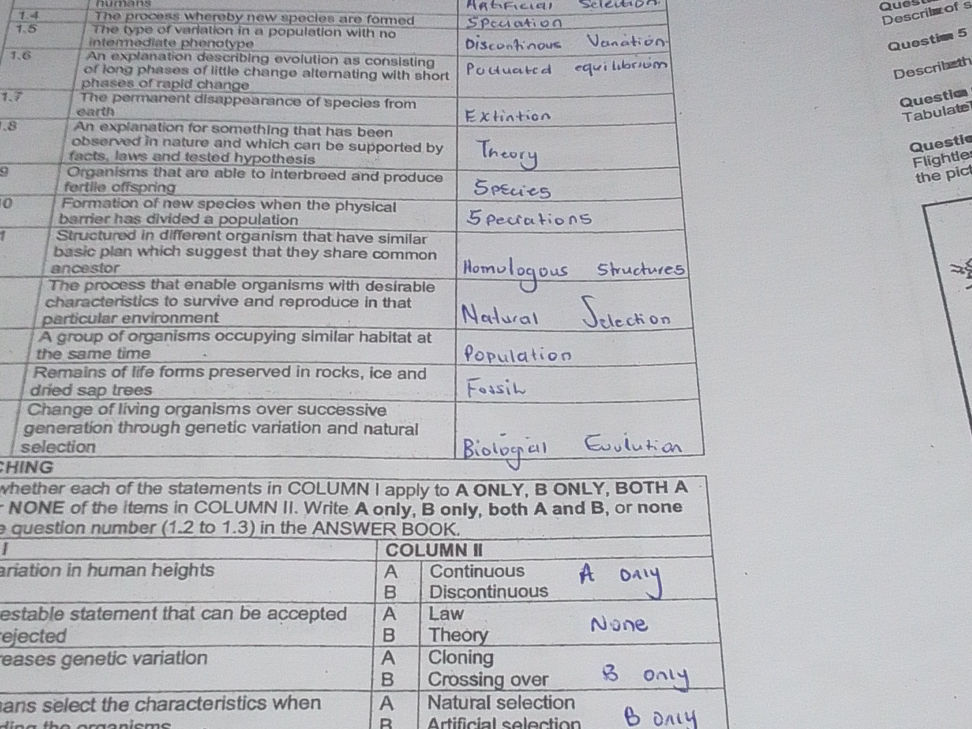 humans
Artificial Selection
1.4 The process whereby new species are formed Speciation
1.5 The type of variation in a population with no
intermediate phenotype Discontinous Variation
1.6 An explanation describing evolution as consisting
of long phases of little change alternating with short Puctuated equilibrium
phases of rapid change
1.7 The permanent disappearance of species from
earth Extintion
1.8 An explanation for something that has been
observed in nature and which can be supported by
facts, laws and tested hypothesis Theory
9 Organisms that are able to interbreed and produce
fertile offspring Species
0 Formation of new species when the physical
barrier has divided a population Speciations
1 Structured in different organism that have similar
basic plan which suggest that they share common
ancestor Homologous Structures
The process that enable organisms with desirable
characteristics to survive and reproduce in that
particular environment Natural Selection
A group of organisms occupying similar habitat at
the same time Population
Remains of life forms preserved in rocks, ice and
dried sap trees Fossils
Change of living organisms over successive
generation through genetic variation and natural
selection Biological Evolution
CHING
whether each of the statements in COLUMN I apply to A ONLY, B ONLY, BOTH A
NONE of the items in COLUMN II. Write A only, B only, both A and B, or none
question number (1.2 to 1.3) in the ANSWER BOOK.
I COLUMN II
ariation in human heights A Continuous A only
B Discontinuous
estable statement that can be accepted A Law
rejected B Theory None
reases genetic variation A Cloning
B Crossing over B only
mans select the characteristics when A Natural selection
ding the organisms B Artificial selection B only
Questi
Describe of s
Question 5
Describe th
Question
Tabulate
Questio
Flightle
the pict